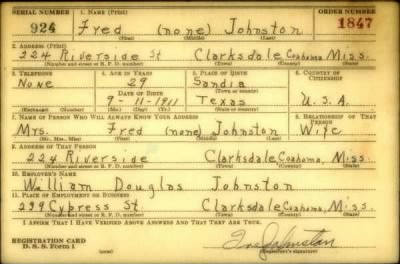 SERIAL NUMBER 1. NAME (Print) ORDER NUMBER
924 Fred (none) Johnston 1847
(First) (Middle) (Last)
2. ADDRESS (Print)
224 Riverside St Clarksdale Coahoma, Miss.
(Number and street or R. F. D. number) (Town) (County) (State)
3. TELEPHONE 4. AGE IN YEARS 5. PLACE OF BIRTH 6. COUNTRY OF CITIZENSHIP
None 29 Sandia
DATE OF BIRTH
9-11-1911 Texas U.S.A.
(Exchange) (Number) (Mo.) (Day) (Yr.) (State or country)
7. NAME OF PERSON WHO WILL ALWAYS KNOW YOUR ADDRESS 8. RELATIONSHIP OF THAT PERSON
Mrs. Fred (none) Johnston Wife
(Mr., Mrs., Miss) (First) (Middle) (Last)
9. ADDRESS OF THAT PERSON
224 Riverside Clarksdale, Coahoma, Miss.
(Number and street or R. F. D. number) (Town) (County) (State)
10. EMPLOYER'S NAME
William Douglas Johnston
11. PLACE OF EMPLOYMENT OR BUSINESS
299 Cypress St. Clarksdale Coahoma, Miss.
(Number and street or R. F. D. number) (Town) (County) (State)
I AFFIRM THAT I HAVE VERIFIED ABOVE ANSWERS AND THAT THEY ARE TRUE.
REGISTRATION CARD
D. S. S. Form 1 Johnston
(Registrant's signature)